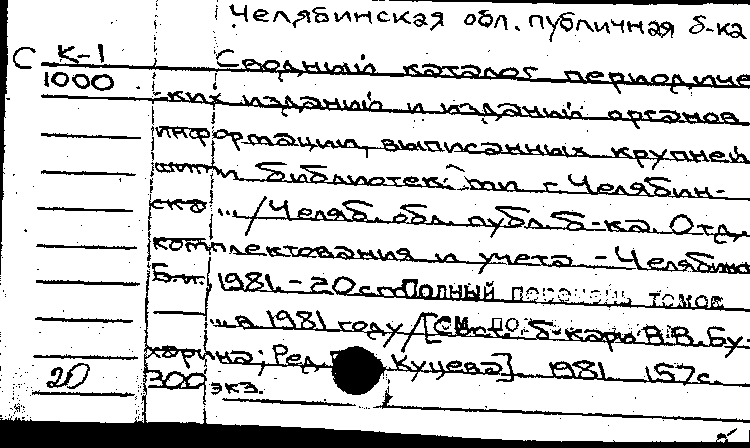 Челябинская обл. публичная б-ка
С К-1
1000
Сводный каталог периодиче
-ких изданий и изданий органов
информации, выписанных крупней
шими библиотеками г. Челябин-
ска ... /Челяб. обл. публ. б-ка. Отд.
комплектования и учета - Челябинс
Б.и., 1981. - 20 см Полный перечень томов
... в 1981 году/[Сост. б-карь В.В. Бу-
харина; Ред. Куцева]. 1981. 157с.
20 300 экз.